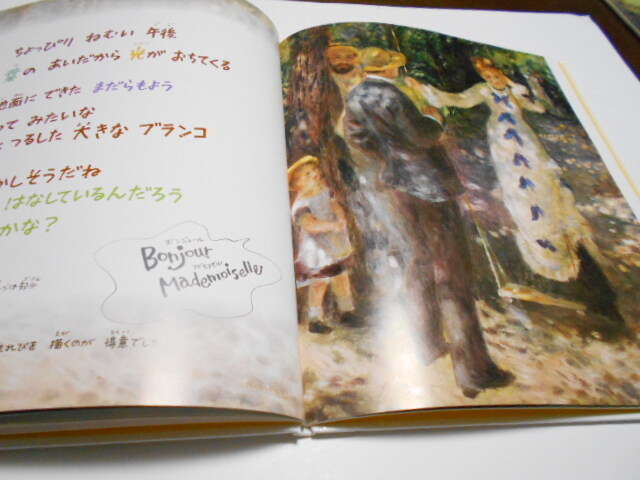 ちょっぴり ねむい 午後
の あいだから 光が おちてくる
地面に できた まだらもよう
って みたいな
つるした 大きな ブランコ
かしそうだね
はなしているんだろう
かな？
ボンジュール
Bonjour
マドモワゼル
Mademoiselles
れびを 描くのが 得意でした